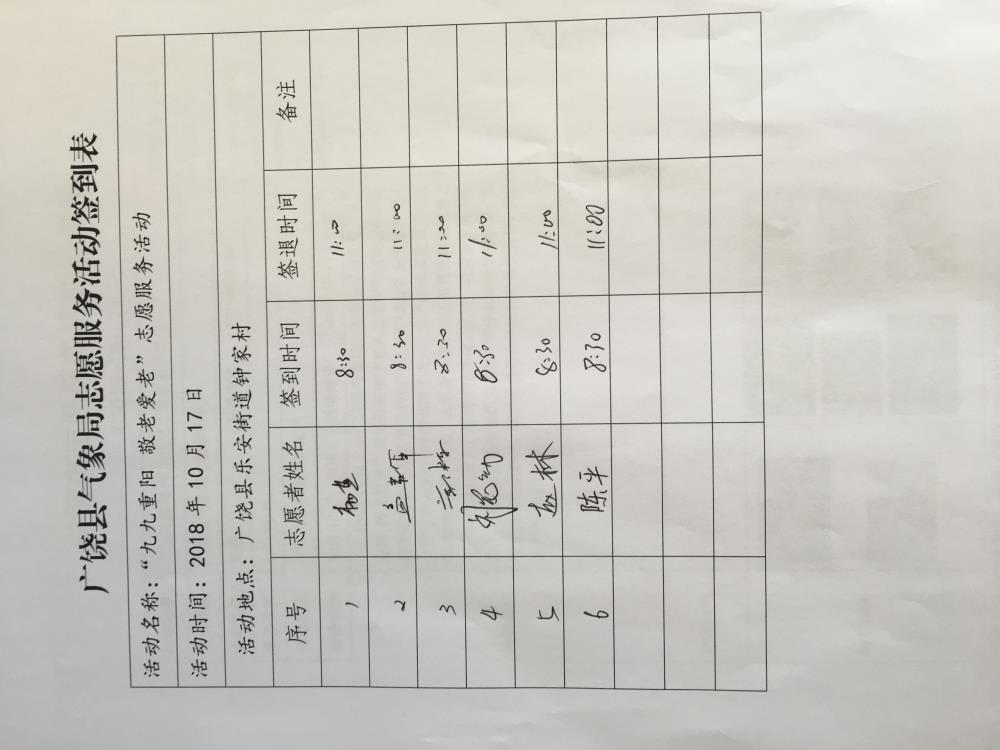 广饶县气象局志愿服务活动签到表
活动名称：“九九重阳 敬老爱老”志愿服务活动
活动时间：2018年10月17日
活动地点：广饶县乐安街道钟家村
序号 志愿者姓名 签到时间 签退时间 备注
1 8:30 11:00
2 8:30 11:00
3 8:30 11:00
4 8:30 11:00
5 赵林 8:30 11:00
6 陈平 8:30 11:00